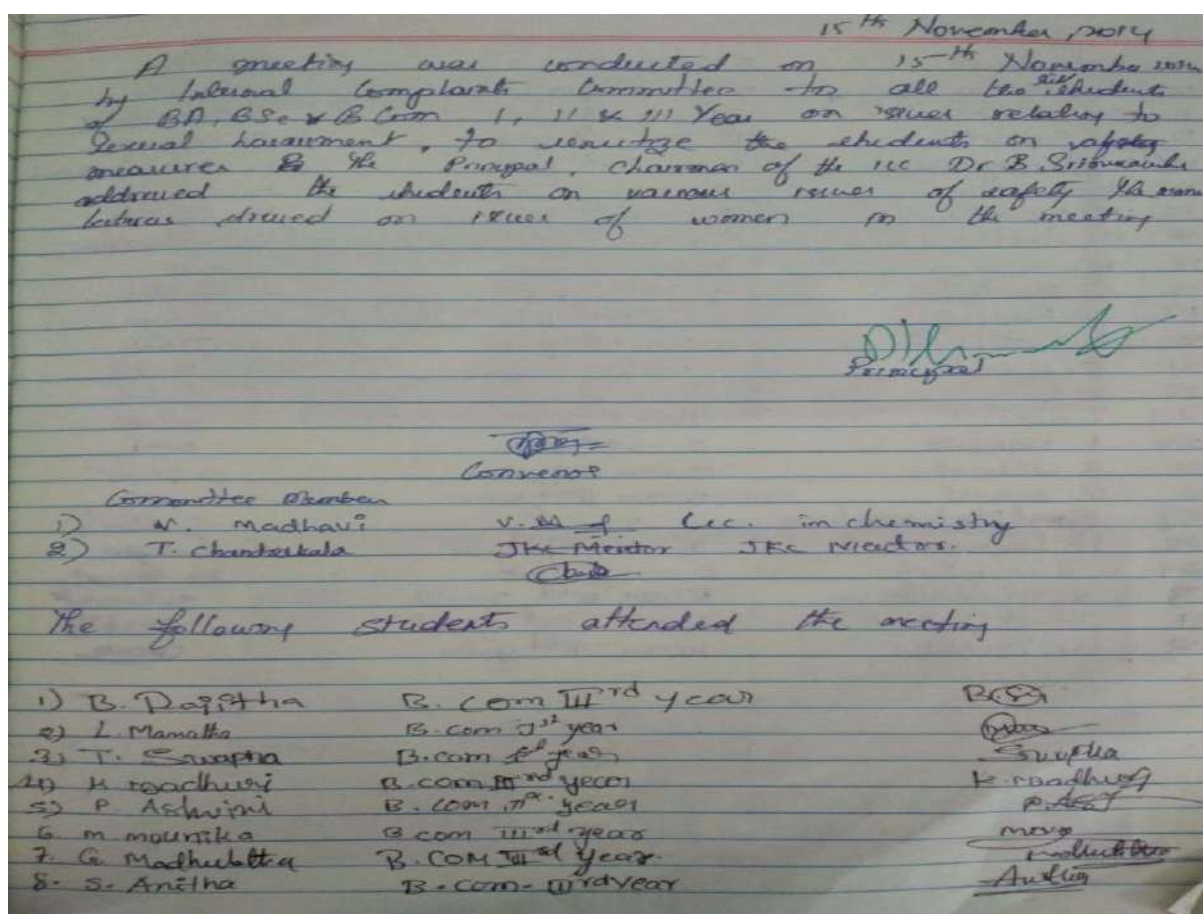 15th November, 2014
A meeting was conducted on 15th November 2014
by Internal Complaints Committee to all the girl students
of BA, BSc & B Com I, II & III Year on issues relating to
Sexual harassment, to sensitize the students on safety
measures the Principal, Chairman of the ICC Dr B
addressed the students on various issues of safety
on issues of women in the meeting
Principal
Convenor
Committee Member
1) N. Madhavi Lec. in chemistry
2) T. Chanderkala JKC Mentor JKC Mentor.
The following students attended the meeting
1) B. Rajitha B. com IIIrd year
2) L. Mamatha B. com Ist year
3) T. Swapna B. com year Swapna
4) K B. com year K.
5) P. Ashwini B. com year
6 m. mounika B com IIIrd year
7. G. B. COM year.
8. S. Anitha B. com- IIIrd year